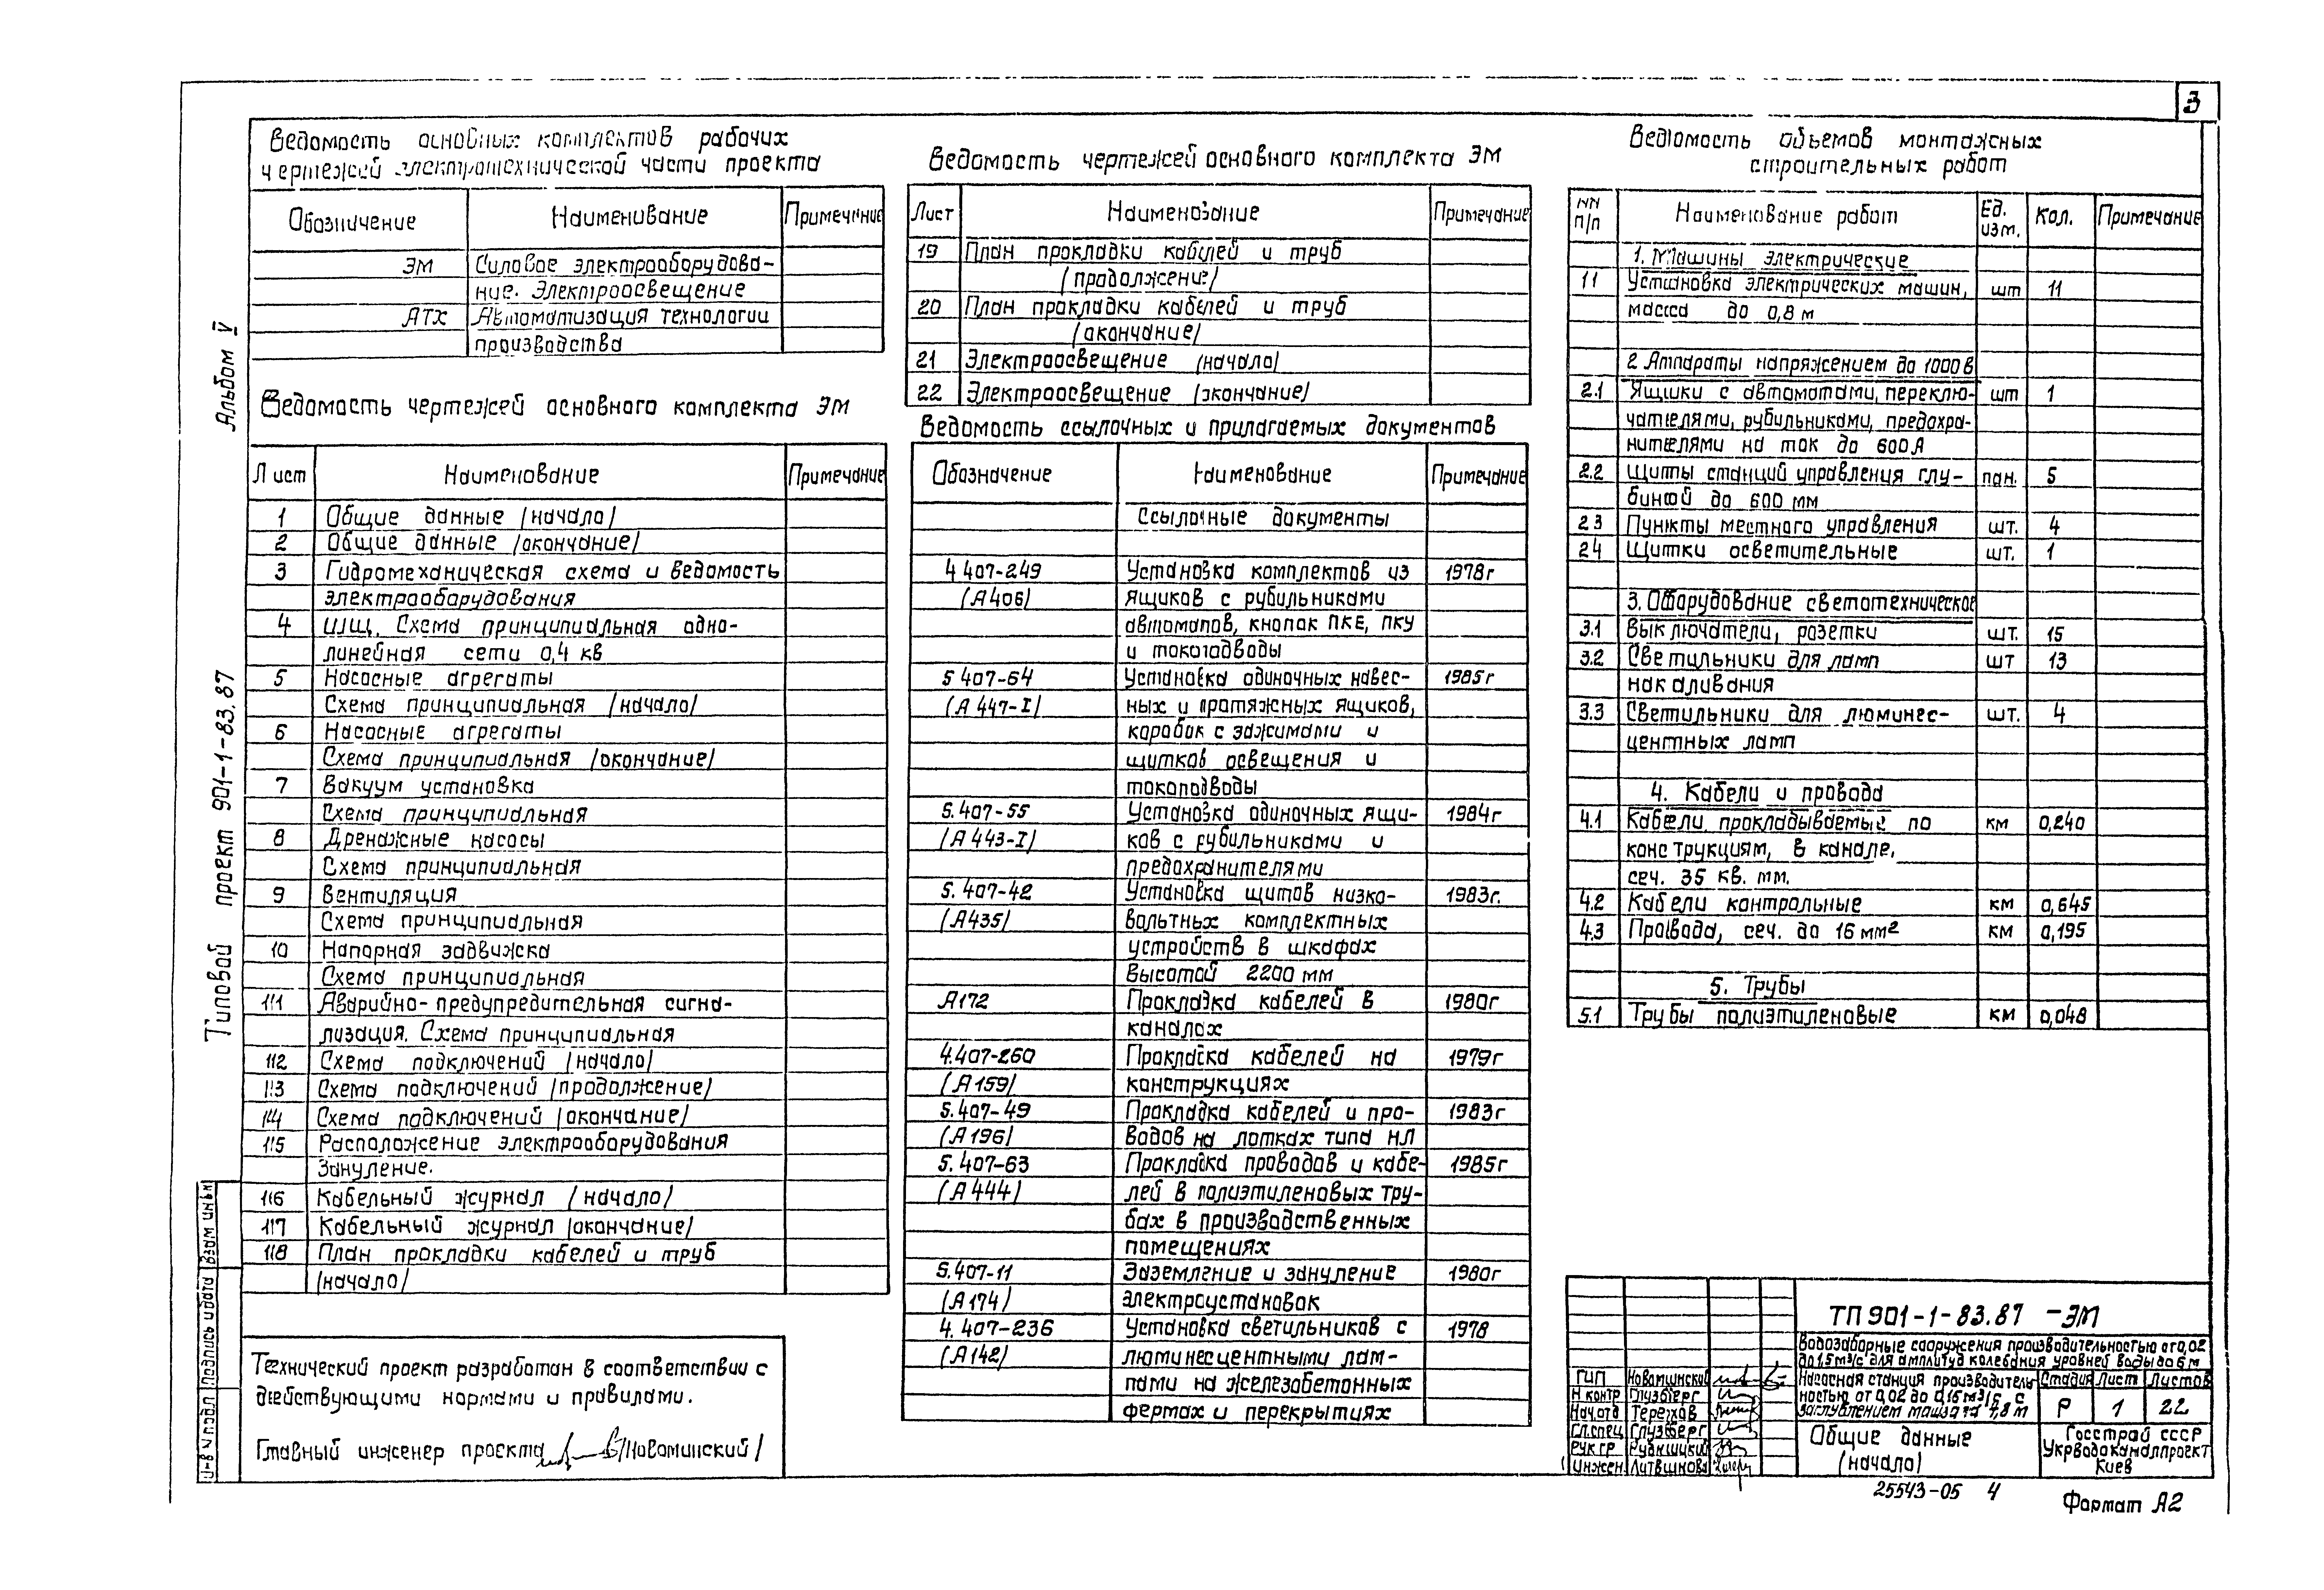 3
Ведомость основных комплектов рабочих
чертежей электротехнической части проекта
Обозначение Наименование Примечание
ЭМ Силовое электрооборудова-
ние. Электроосвещение
АТХ Автоматизация технологии
производства
Ведомость чертежей основного комплекта ЭМ
Лист Наименование Примечание
1 Общие данные /начало/
2 Общие данные /окончание/
3 Гидромеханическая схема и ведомость
электрооборудования
4 ШЩ. Схема принципиальная одно-
линейная сети 0,4 кв
5 Насосные агрегаты
Схема принципиальная /начало/
6 Насосные агрегаты
Схема принципиальная /окончание/
7 Вакуум установка
Схема принципиальная
8 Дренажные насосы
Схема принципиальная
9 Вентиляция
Схема принципиальная
10 Напорная задвижка
Схема принципиальная
11 Аварийно-предупредительная сигна-
лизация. Схема принципиальная
12 Схема подключений /начало/
13 Схема подключений /продолжение/
14 Схема подключений /окончание/
15 Расположение электрооборудования
Зануление.
16 Кабельный журнал /начало/
17 Кабельный журнал /окончание/
18 План прокладки кабелей и труб
/начало/
Технический проект разработан в соответствии с
действующими нормами и правилами.
Главный инженер проекта /Новоминский/
Ведомость чертежей основного комплекта ЭМ
Лист Наименование Примечание
19 План прокладки кабелей и труб
/продолжение/
20 План прокладки кабелей и труб
/окончание/
21 Электроосвещение /начало/
22 Электроосвещение /окончание/
Ведомость ссылочных и прилагаемых документов
Обозначение Наименование Примечание
Ссылочные документы
4 407-249 Установка комплектов из 1978г
(А406) ящиков с рубильниками
автоматов, кнопок ПКЕ, ПКУ
и токоподводы
5 407-64 Установка одиночных навес- 1985г
(А 447-I) ных и протяжных ящиков,
коробок с зажимами и
щитков освещения и
токоподводы
5.407-55 Установка одиночных ящи- 1984г
(А 443-I) ков с рубильниками и
предохранителями
5.407-42 Установка щитов низко- 1983г.
(А435) вольтных комплектных
устройств в шкафах
высотой 2200 мм
А172 Прокладка кабелей в 1980г
каналах
4.407-260 Прокладка кабелей на 1979г
(А159) конструкциях
5.407-49 Прокладка кабелей и про- 1983г
(А196) водов на лотках типа НЛ
5.407-63 Прокладка проводов и кабе- 1985г
(А444) лей в полиэтиленовых тру-
бах в производственных
помещениях
5.407-11 Заземление и зануление 1980г
(А174) электроустановок
4.407-236 Установка светильников с 1978
(А142) люминесцентными лам-
пами на железобетонных
фермах и перекрытиях
Ведомость объемов монтажных
строительных работ
NN п/п Наименование работ Ед. изм. Кол. Примечание
1. Машины электрические
11 Установка электрических машин, шт 11
масса до 0,8 м
2 Аппараты напряжением до 1000 В
2.1 Ящики с автоматами, переклю- шт 1
чателями, рубильниками, предохра-
нителями на ток до 600А
2.2 Щиты станций управления глу- пан. 5
биной до 600 мм
23 Пункты местного управления шт. 4
24 Щитки осветительные шт. 1
3. Оборудование светотехническое
3.1 Выключатели, розетки шт. 15
3.2 Светильники для ламп шт 13
накаливания
3.3 Светильники для люминес- шт. 4
центных ламп
4. Кабели и провода
4.1 Кабели, прокладываемые по км 0,240
конструкциям, в канале,
сеч. 35 кв. мм.
4.2 Кабели контрольные км 0,645
4.3 Провода, сеч. до 16 мм² км 0,195
5. Трубы
5.1 Трубы полиэтиленовые км 0,048
ТП 901-1-83.87 -ЭМ
Водозаборные сооружения производительностью от 0,02
до 1,5 м³/с для амплитуд колебания уровней воды до 6 м
Насосная станция производитель-
ностью от 0,02 до 0,15 м³/с, с
заглублением машзала 7,8 м
Стадия Лист Листов
Р 1 22
Общие данные
/начало/
Госстрой СССР
Укрводоканалпроект
Киев
ГИП Новоминский
Н контр Глузберг
Нач.отд Терехов
Гл.спец Глузберг
Рук.гр Рудницкий
Инжен Литвинова
25543-05 4
Формат А2
Альбом V
Типовой проект 901-1-83.87
Взам инв N
Подпись и дата
Инв N подл